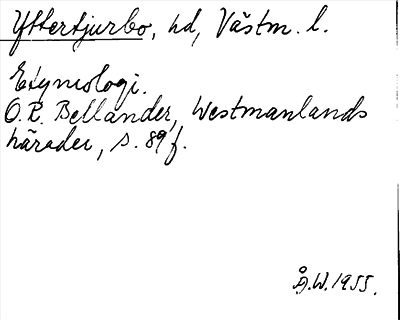 Yttertjurbo, hd, Västm. l.
Etymologi.
O. R. Bellander, Westmanlands
härader, s. 89 f.
Å.W. 1955.